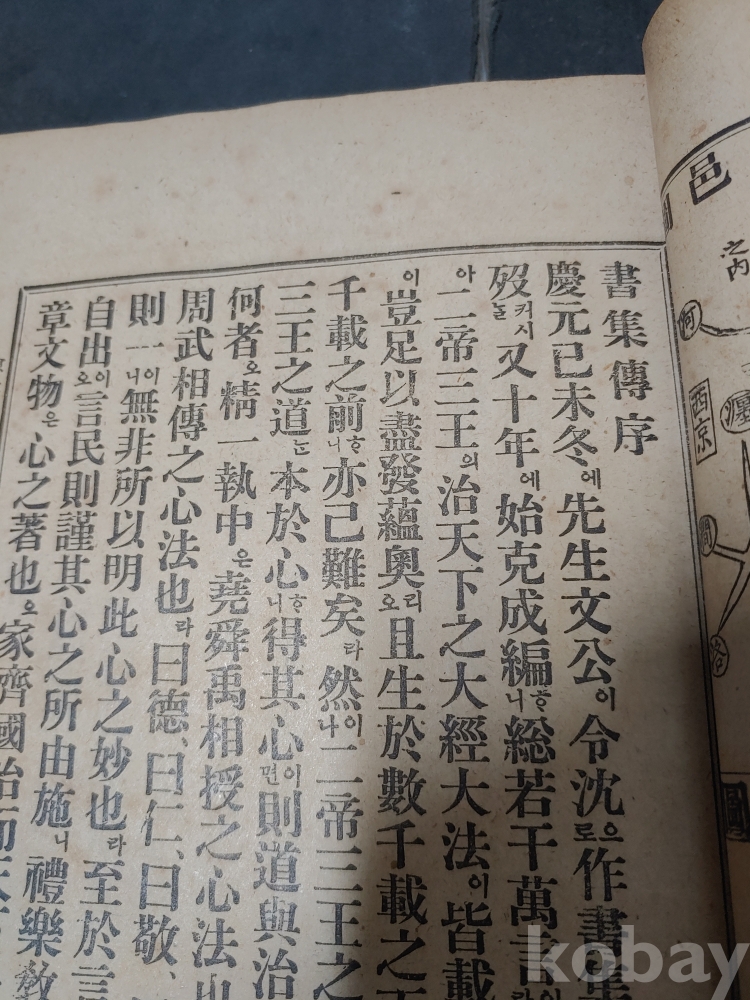 邑
之內
河
西京
瀍
澗
洛
圖
書集傳序
慶元己未冬에先生文公이令沈으로作書集
歿커시늘又十年에始克成編ᄒᆞ니総若干萬言
아二帝三王의治天下之大經大法이皆載
이豈足以盡發蘊奧리오且生於數千載之
千載之前ᄒᆞ니亦已難矣라然이나二帝三王之
三王之道ᄂᆞᆫ本於心ᄒᆞ니得其心이면則道與治
何者오精一執中은堯舜禹相授之心法也
周武相傳之心法也라曰德、曰仁、曰敬、
則一이니無非所以明此心之妙也라至於言
自出이오言民則謹其心之所由施니禮樂敎
章文物은心之著也오家齊國治而天
kobay